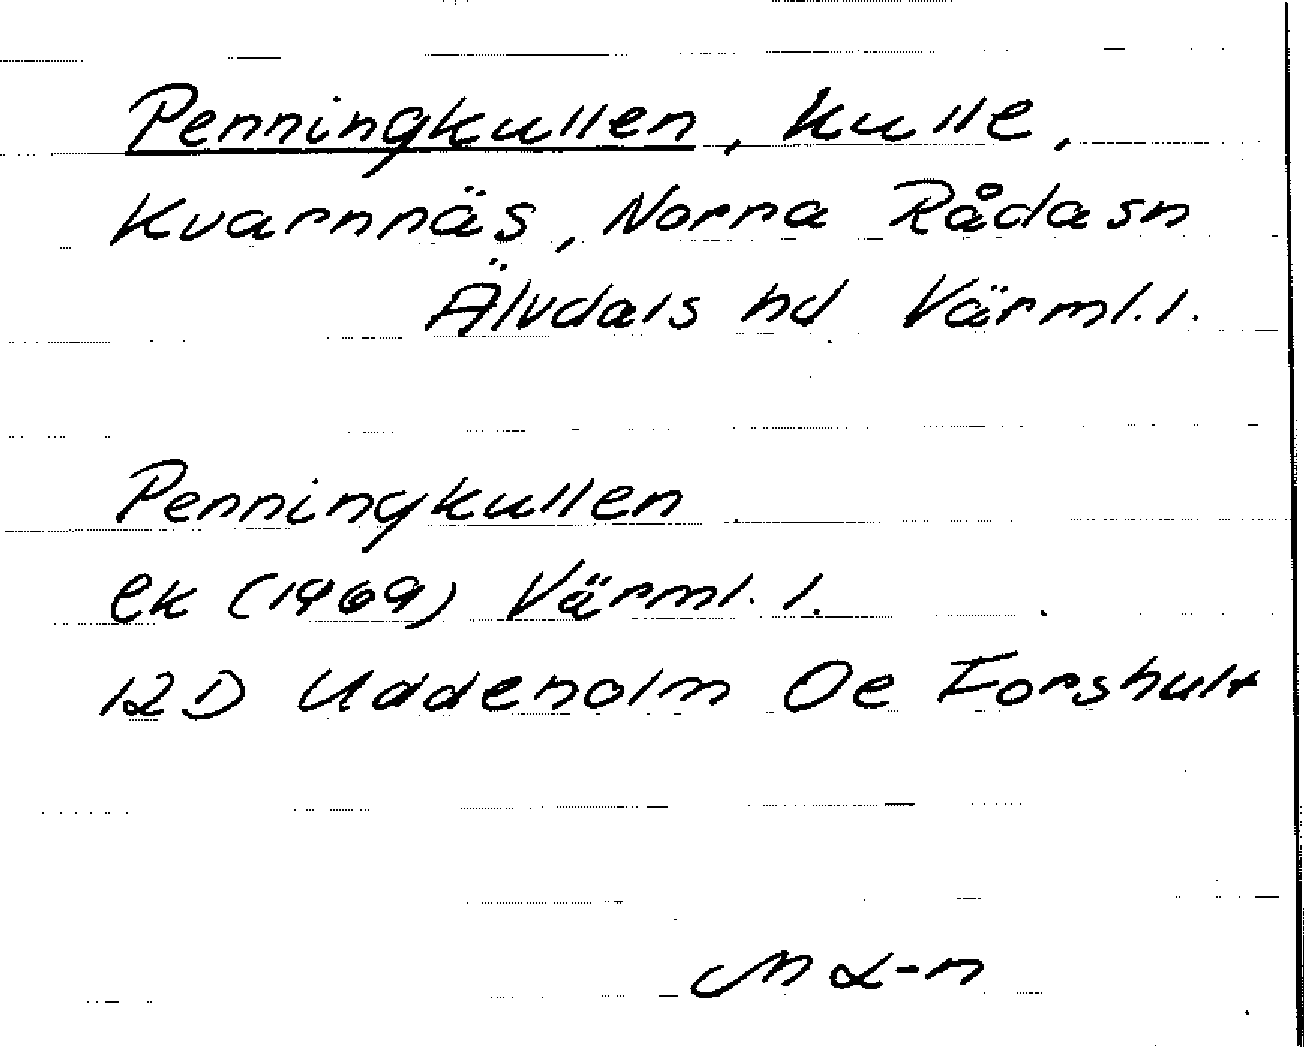 Penningkullen, kulle,
Kvarnnäs, Norra Råda sn
Älvdals hd Värml. l.
Penningkullen
ek (1969) Värml. l.
12D Uddeholm Oe Forshult
M L-n